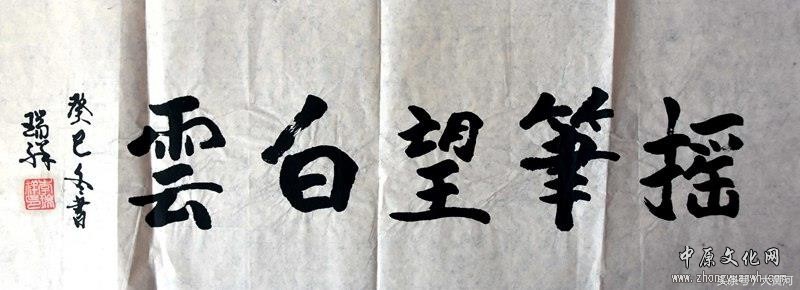 搖筆望白雲
癸巳冬書
瑞祥
中原文化网
www.zhongyuanwh.com
头条号/大黄河